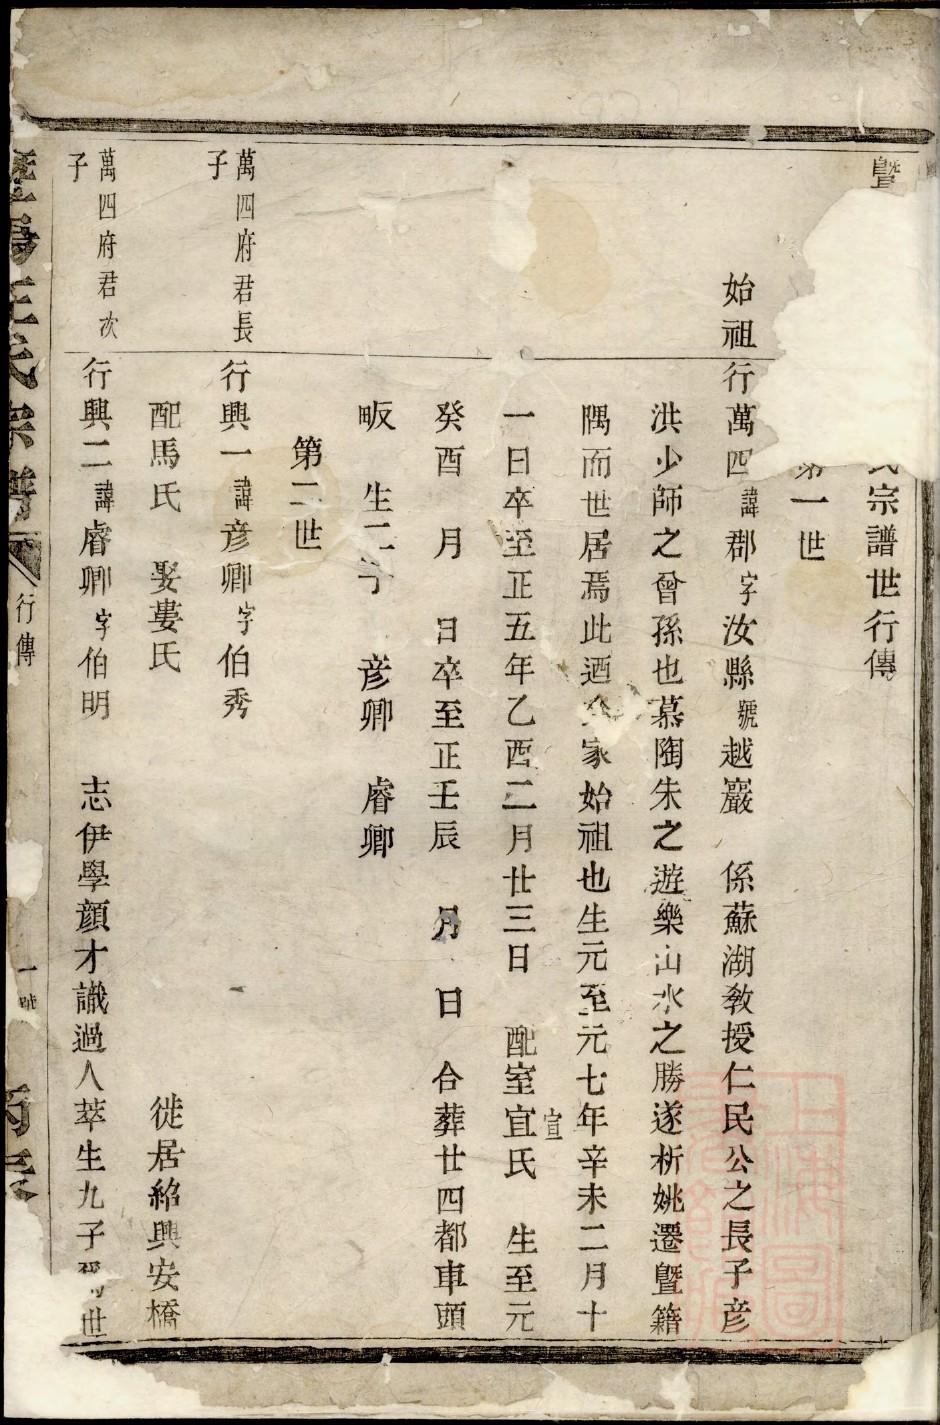 暨
氏宗譜世行傳
第一世
始祖
行萬四諱郡字汝縣號越巖 係蘇湖敎授仁民公之長子彦
洪少師之曾孫也慕陶朱之遊樂山水之勝遂析姚遷曁籍
隅而世居焉此迺 家始祖也生元至元七年辛未二月十
一日卒至正五年乙酉二月廿三日 配室宜氏 生至元
宣
癸酉 月 日卒至正壬辰 月 日 合葬廿四都車頭
畈 生二子 彦卿 睿卿
第二世
萬四府君長
子
行興一諱彦卿字伯秀
配馬氏 娶婁氏 徙居紹興安橋
萬四府君次
子
行興二諱睿卿字伯明 志伊學顔才識過人萃生九子 世
宗譜
行傳
一